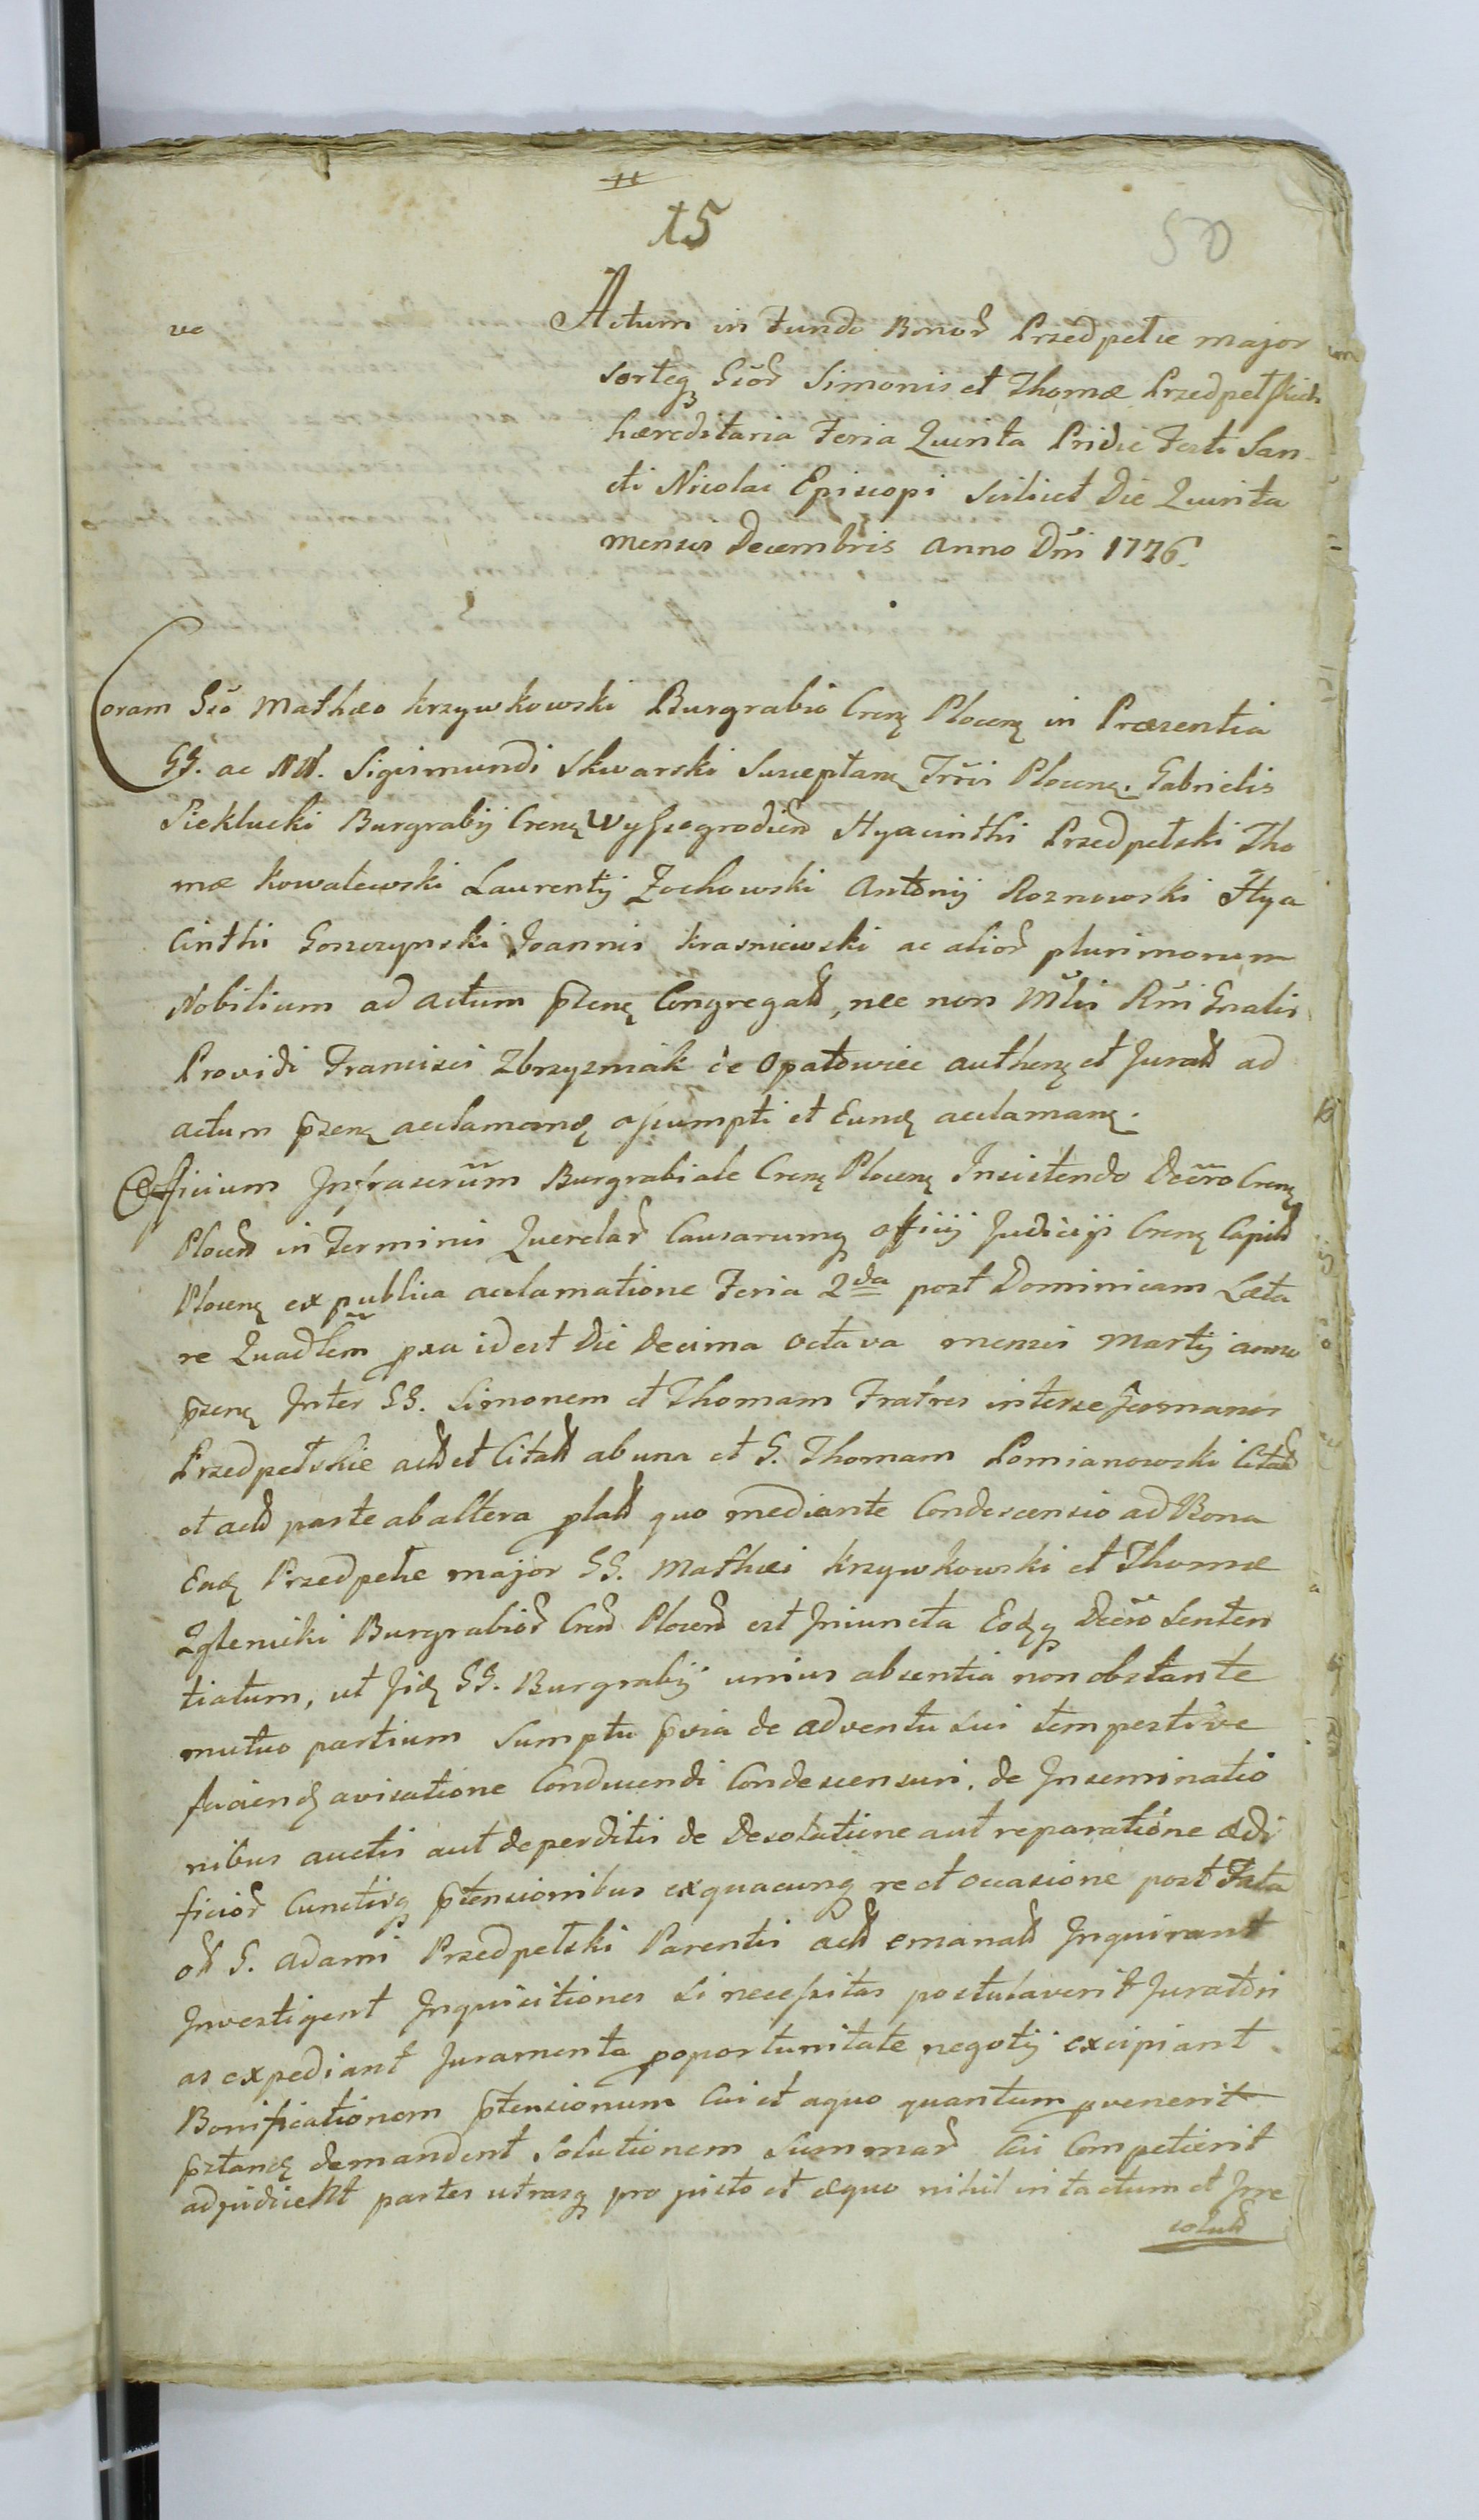 15
50
Actum in Fundo Bonor Przedpełcie major
sorteq Gsor Simonis et Thomæ Przedpełskich
hæreditaria Feria Quinta Pridie Festi San-
cti Nicolai Episcopi scilicet Die Quinta
mensis Decembris Anno Dni 1776.
Coram Gso Mathæo Krzywkowski Burgrabio Cren Plocen in Præsentia
GG. ac NN. Sigismundi Skwarski Susceptan Trris Plocen. Gabrielis
Sieklucki Burgrabij Cren Wyszegrodien Hyacinthi Przedpełski Tho
mæ Kowalewski Laurentij Zochowski Antonij Roznowski Hya
cinthi Goszczynski Joannis Krasniewski ac alior plurimorum
Nobilium ad actum przen Congregat, nec non Mtris Rni Gnalis
Providi Francisci Zbrzyzniak de Opatowiec authen et Jurat ad
actum przen acclamand assumpti et Eund acclaman.
Officium Infrascrum Burgrabiale Cren Plocen Insistendo Decro Cren
Plocen in Terminis Querelar Causarumq officij Judicij Cren Capit
Plocen ex publica acclamatione Feria 2da post Dominicam Læta
re Quadlem pxa idest Die Decima Octava mensis Martij anno
przen Inter GG. Simonem et Thomam Fratres interse germanos
Przedpełskie act et Citat ab una et G. Thomam Pomianowski Citat
et act parte ab altera plat quo mediante Condescensio ad Bona
Ead Przedpełcie major GG. Mathæi Krzywkowski et Thomæ
Zglenicki Burgrabior Cren Plocen est Iniuncta Eodq Decro Senten
tiatum, ut Iid GG. Burgrabij unius absentia non obstante
mutuo partium sumptu pvia de adventu sui tempestive
faciend avisatione Conducendi Condescensuri, de Inseminatio
nibus auctis aut deperditis de Desolatione aut reparatione ædi
ficior Cunctisq ptensionibus exquacunq re et occasione post Fata
olt G. Adami Przedpełski Parentis act emanat Inquirant
Investigent Inquisitiones si necessitas postulaverit Juratori
as expediant Juramenta popportunitate negotij excipiant
Bonificationem ptensionum Cui et aquo quantum pvenerit
pstand demandent Solutionem Summar Cui Competierit
adjudicent partes utrasq pro justo et æquo nihil intactum et Irre
solut